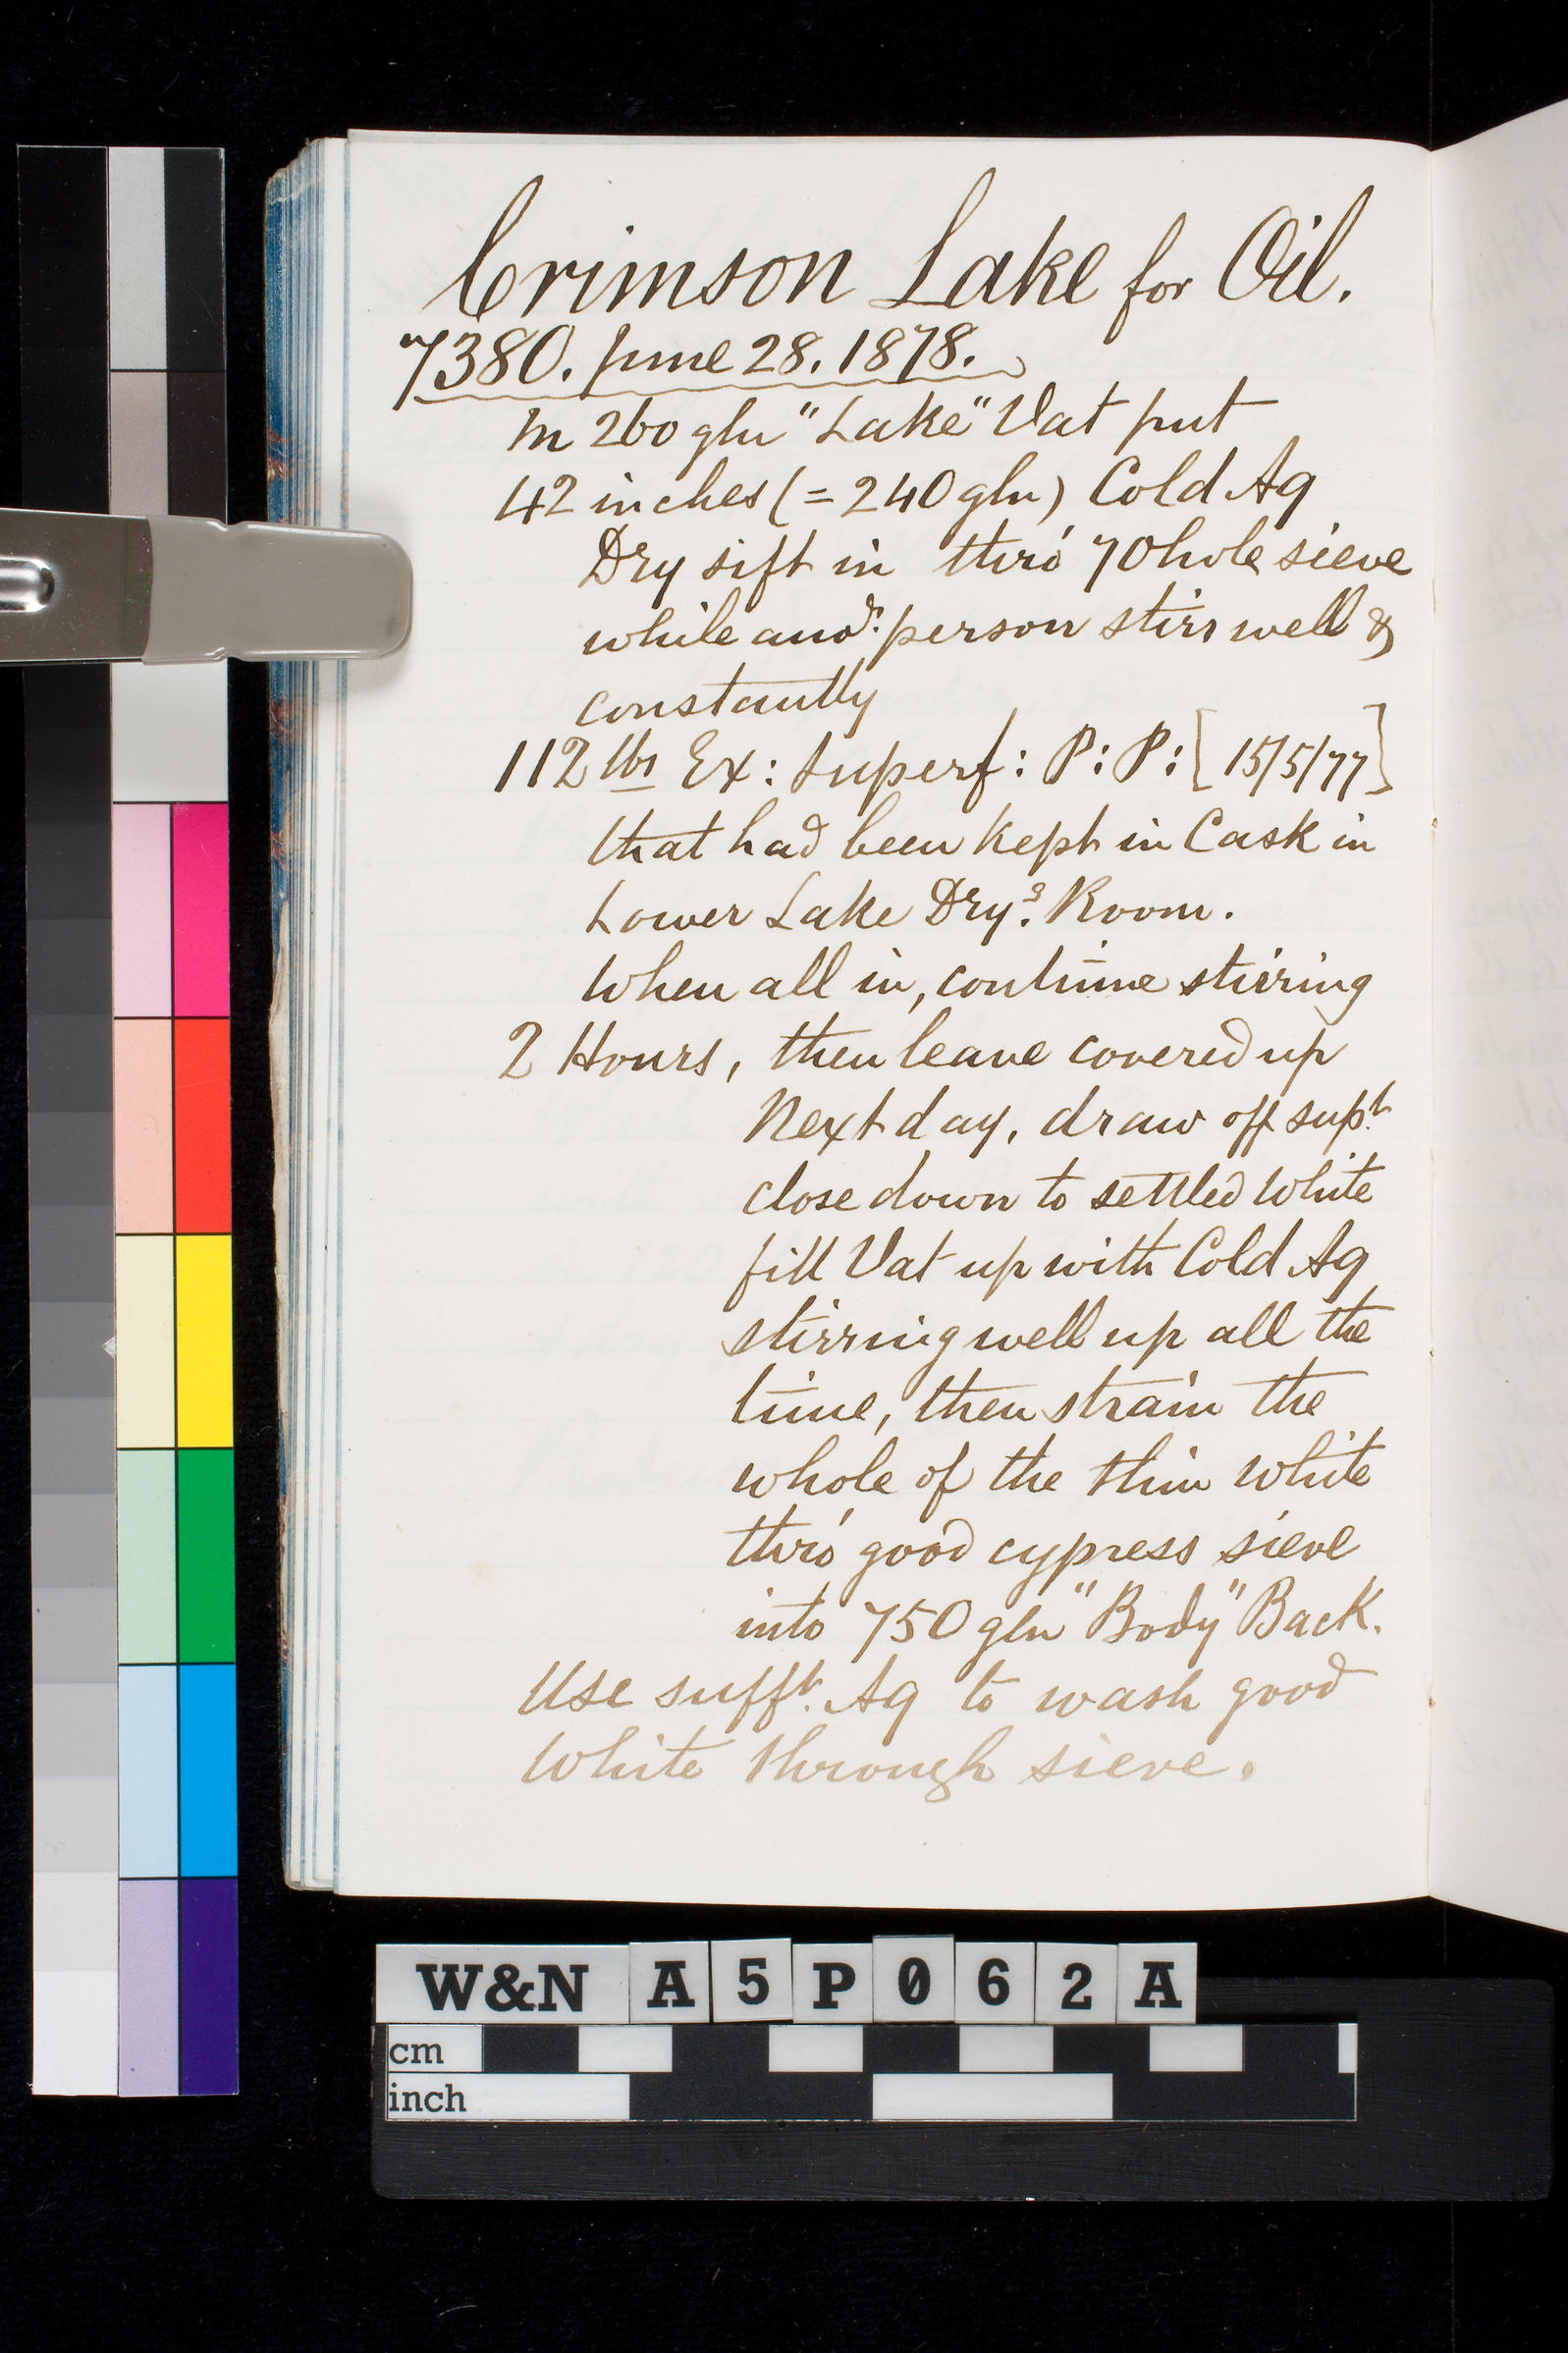 Crimson Lake for Oil.
7380. June 28. 1878.
In 260 gln "Lake" Vat put
42 inches (= 240 gln) Cold Aq
Dry sift in thro' 70 hole sieve
while anor. person stirs well &
constantly
112 lbs Ex: Superf: P: P: [15/5/77]
that had been kept in Cask in
Lower Lake Dryg. Room.
When all in, continue stirring
2 Hours, then leave covered up
Next day, draw off supt.
close down to settled White
fill Vat up with Cold Aq
stirring well up all the
time, then strain the
whole of the thin White
thro' good cypress sieve
into 750 gln "Body" Back.
Use sufft. Aq to wash good
White through sieve.
W&N A5P062A
cm
inch